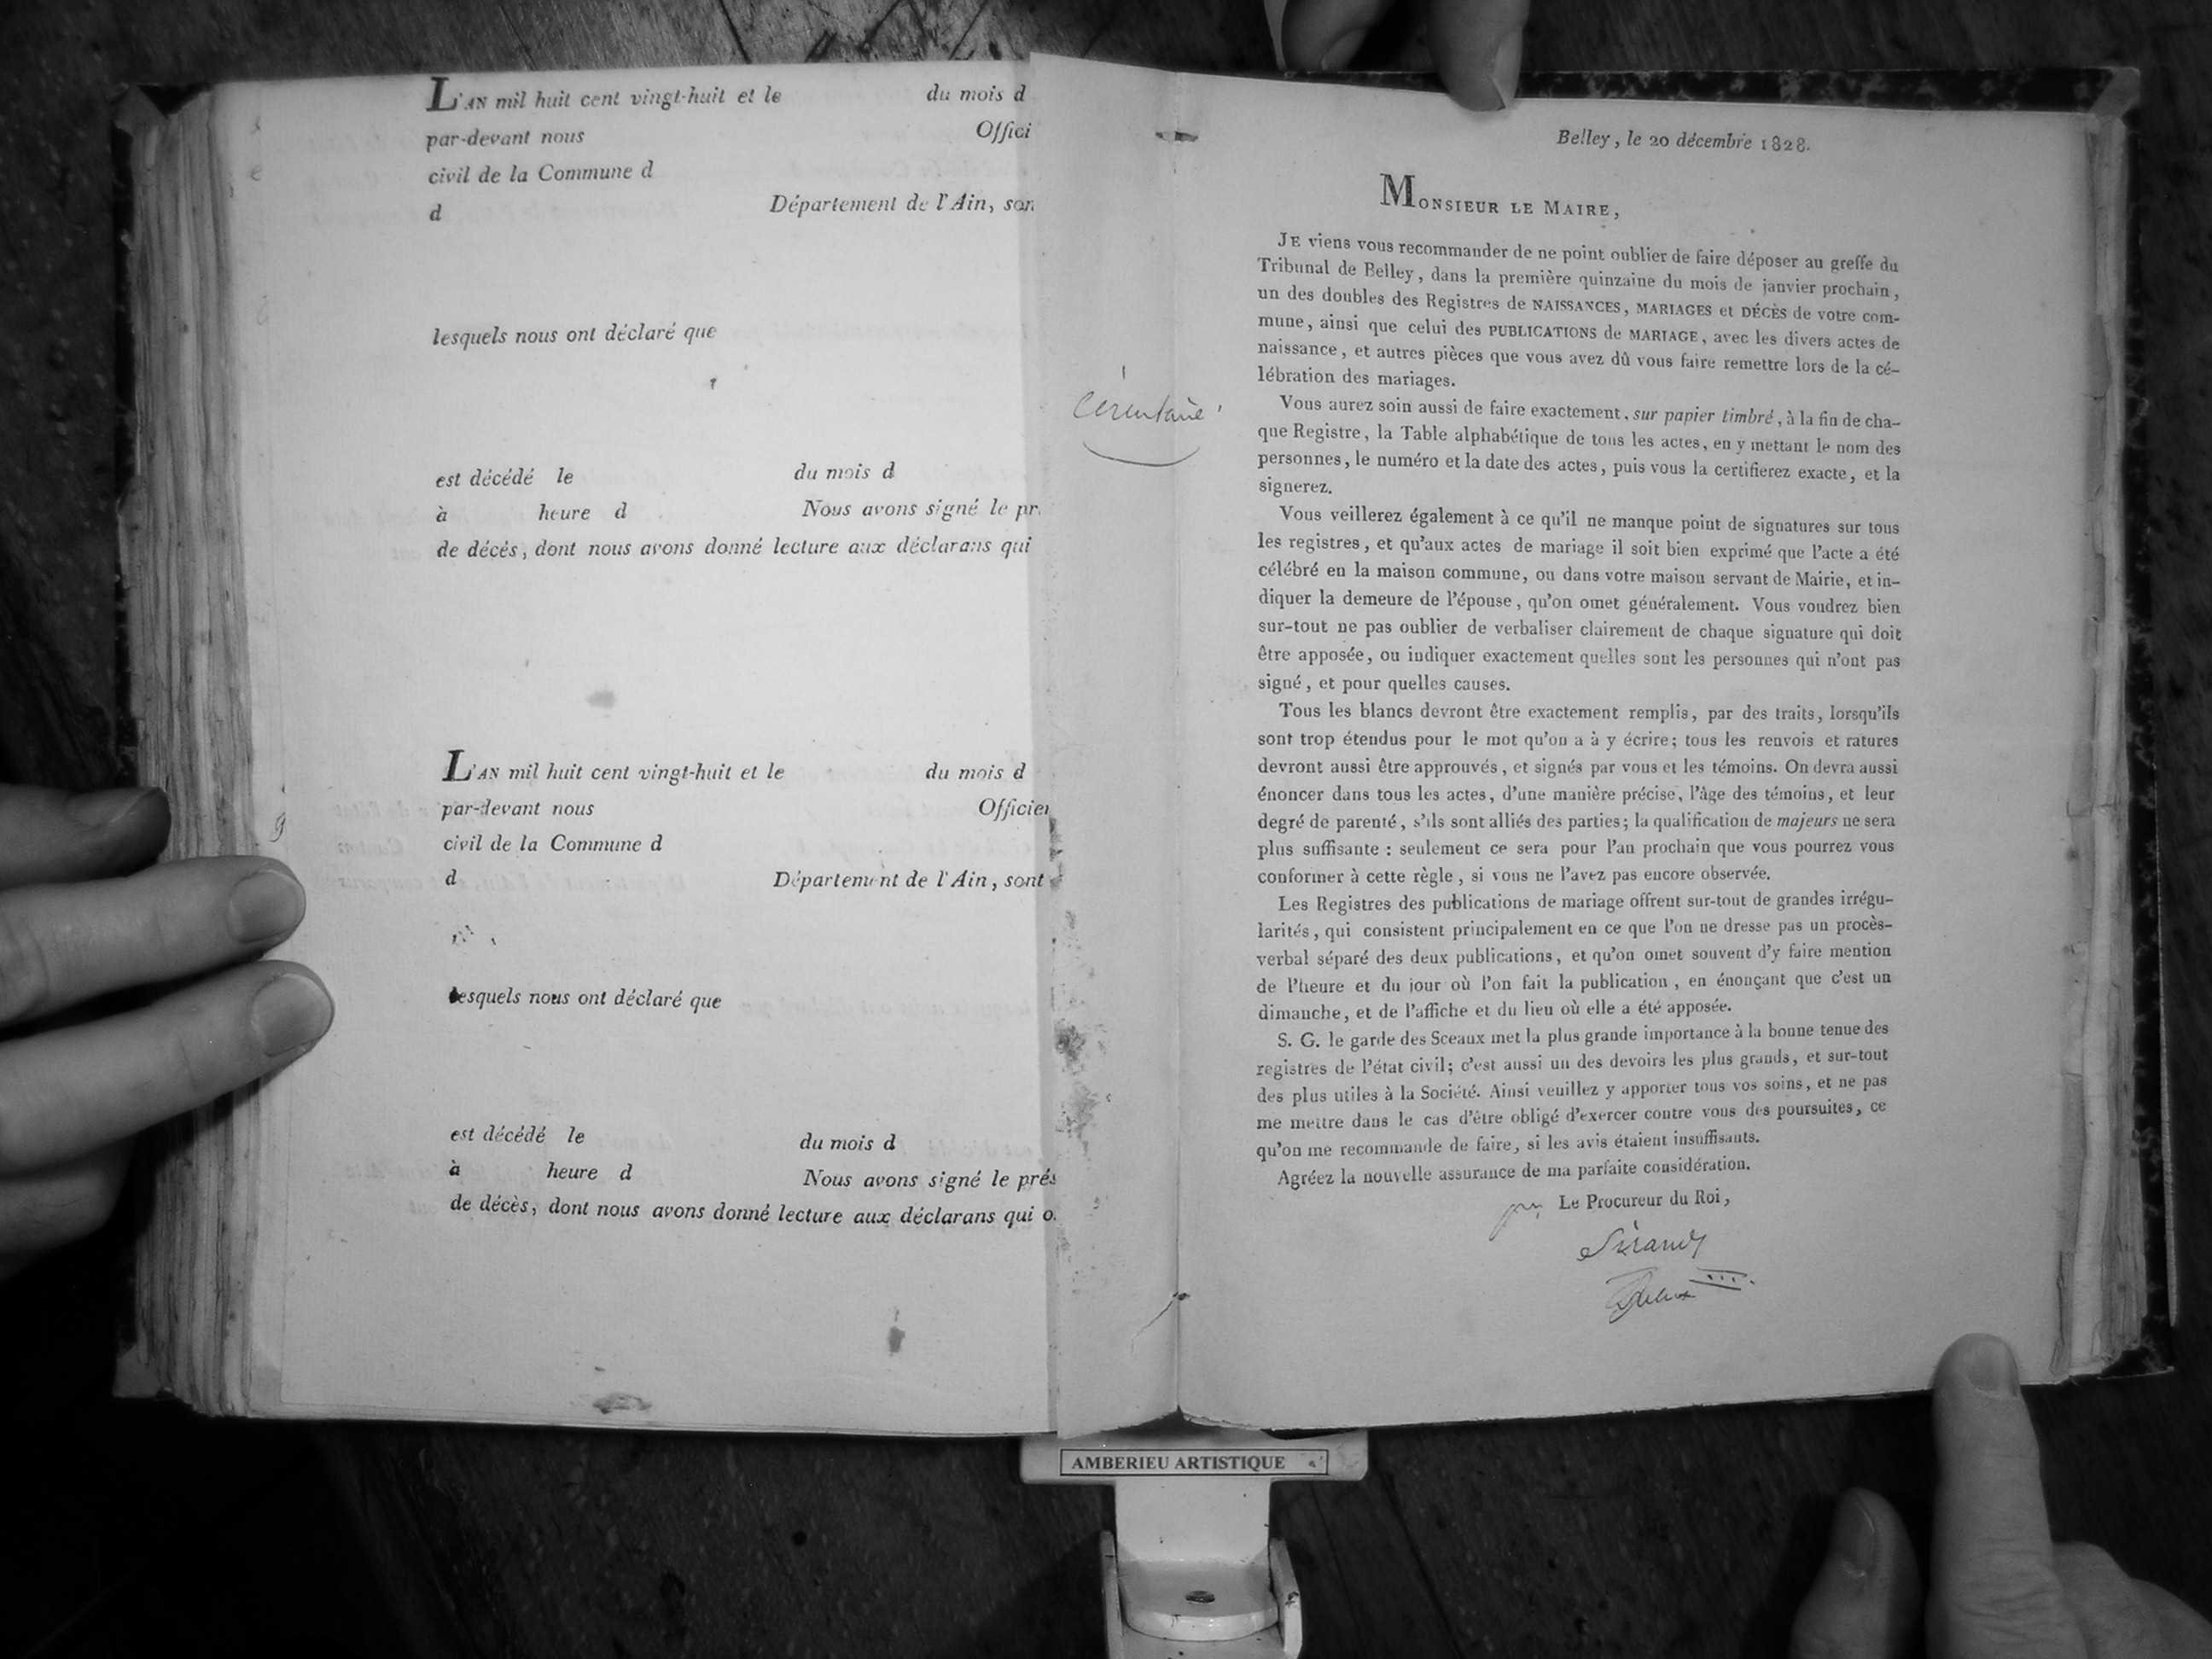 L'AN mil huit cent vingt-huit et le du mois d
par-devant nous Offici
civil de la Commune d
d Département de l'Ain, son
lesquels nous ont déclaré que
est décédé le du mois d
à heure d Nous avons signé le pr
de décès, dont nous avons donné lecture aux déclarans qui
L'AN mil huit cent vingt-huit et le du mois d
par-devant nous Officier
civil de la Commune d
d Département de l'Ain, sont
lesquels nous ont déclaré que
est décédé le du mois d
à heure d Nous avons signé le prés
de décès, dont nous avons donné lecture aux déclarans qui o
Belley, le 20 décembre 1828.
MONSIEUR LE MAIRE,
JE viens vous recommander de ne point oublier de faire déposer au greffe du
Tribunal de Belley, dans la première quinzaine du mois de janvier prochain,
un des doubles des Registres de NAISSANCES, MARIAGES et DÉCÈS de votre com-
mune, ainsi que celui des PUBLICATIONS de MARIAGE, avec les divers actes de
naissance, et autres pièces que vous avez dû vous faire remettre lors de la cé-
lébration des mariages.
Vous aurez soin aussi de faire exactement, sur papier timbré, à la fin de cha-
que Registre, la Table alphabétique de tous les actes, en y mettant le nom des
personnes, le numéro et la date des actes, puis vous la certifierez exacte, et la
signerez.
Vous veillerez également à ce qu'il ne manque point de signatures sur tous
les registres, et qu'aux actes de mariage il soit bien exprimé que l'acte a été
célébré en la maison commune, ou dans votre maison servant de Mairie, et in-
diquer la demeure de l'épouse, qu'on omet généralement. Vous voudrez bien
sur-tout ne pas oublier de verbaliser clairement de chaque signature qui doit
être apposée, ou indiquer exactement quelles sont les personnes qui n'ont pas
signé, et pour quelles causes.
Tous les blancs devront être exactement remplis, par des traits, lorsqu'ils
sont trop étendus pour le mot qu'on a à y écrire; tous les renvois et ratures
devront aussi être approuvés, et signés par vous et les témoins. On devra aussi
énoncer dans tous les actes, d'une manière précise, l'âge des témoins, et leur
degré de parenté, s'ils sont alliés des parties; la qualification de majeurs ne sera
plus suffisante : seulement ce sera pour l'an prochain que vous pourrez vous
conformer à cette règle, si vous ne l'avez pas encore observée.
Les Registres des publications de mariage offrent sur-tout de grandes irrégu-
larités, qui consistent principalement en ce que l'on ne dresse pas un procès-
verbal séparé des deux publications, et qu'on omet souvent d'y faire mention
de l'heure et du jour où l'on fait la publication, en énonçant que c'est un
dimanche, et de l'affiche et du lieu où elle a été apposée.
S. G. le garde des Sceaux met la plus grande importance à la bonne tenue des
registres de l'état civil; c'est aussi un des devoirs les plus grands, et sur-tout
des plus utiles à la Société. Ainsi veuillez y apporter tous vos soins, et ne pas
me mettre dans le cas d'être obligé d'exercer contre vous des poursuites, ce
qu'on me recommande de faire, si les avis étaient insuffisants.
Agréez la nouvelle assurance de ma parfaite considération.
Le Procureur du Roi,
AMBERIEU ARTISTIQUE